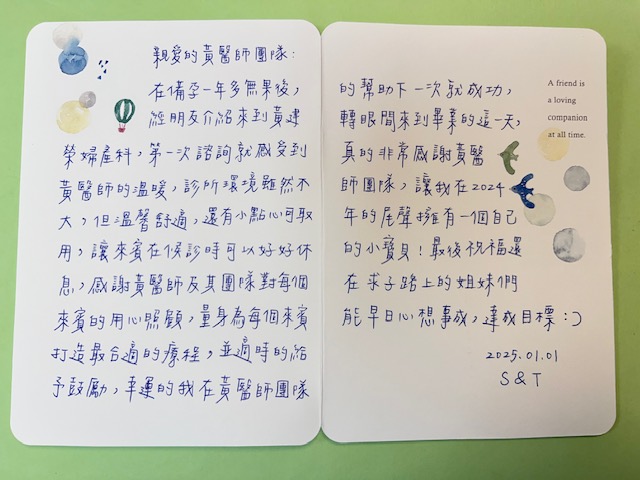 親愛的黃醫師團隊：
在備孕一年多無果後，
經朋友介紹來到黃建
榮婦產科，第一次諮詢就感受到
黃醫師的溫暖，診所環境雖然不
大，但溫馨舒適，還有小點心可取
用，讓來賓在候診時可以好好休
息，感謝黃醫師及其團隊對每個
來賓的用心照顧，量身為每個來賓
打造最合適的療程，並適時的給
予鼓勵，幸運的我在黃醫師團隊
的幫助下一次就成功，
轉眼間來到畢業的這一天，
真的非常感謝黃醫
師團隊，讓我在2024
年的尾聲擁有一個自己
的小寶貝！最後祝福還
在求子路上的姐妹們
能早日心想事成，達成目標：）
2025.01.01
S & T
A friend is
a loving
companion
at all time.